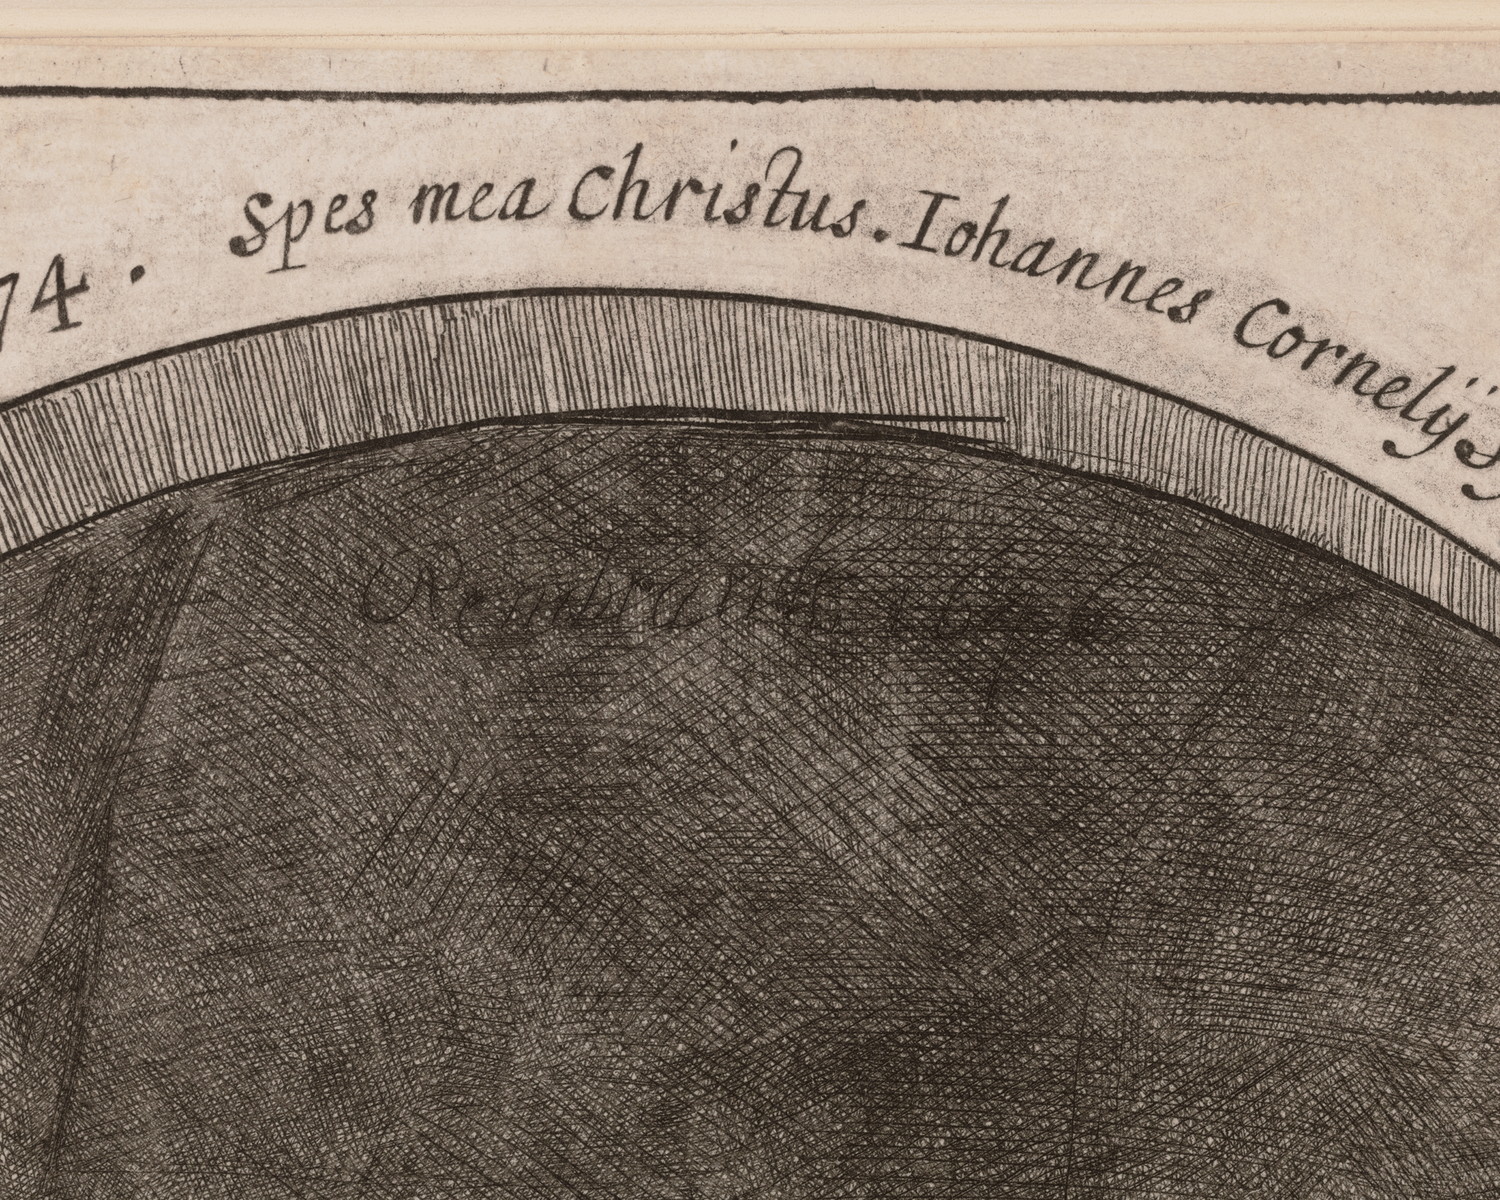 74. Spes mea Christus. Iohannes Cornelÿs
Rembrandt 1646